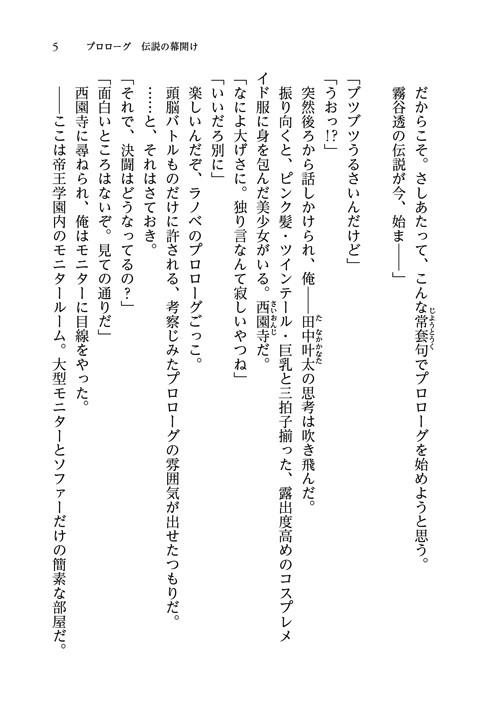 5　プロローグ　伝説の幕開け
だからこそ。さしあたって、こんな常套句でプロローグを始めようと思う。
じょうとうく
霧谷透の伝説が今、始ま――」
「ブツブツうるさいんだけど」
「うおっ!?」
突然後ろから話しかけられ、俺――田中叶太の思考は吹き飛んだ。
たなかかなた
振り向くと、ピンク髪・ツインテール・巨乳と三拍子揃った、露出度高めのコスプレメ
イド服に身を包んだ美少女がいる。西園寺だ。
さいおんじ
「なによ大げさに。独り言なんて寂しいやつね」
「いいだろ別に」
楽しいんだぞ、ラノベのプロローグごっこ。
頭脳バトルものだけに許される、考察じみたプロローグの雰囲気が出せたつもりだ。
……と、それはさておき。
「それで、決闘はどうなってるの？」
「面白いところはないぞ。見ての通りだ」
西園寺に尋ねられ、俺はモニターに目線をやった。
――ここは帝王学園内のモニタールーム。大型モニターとソファーだけの簡素な部屋だ。